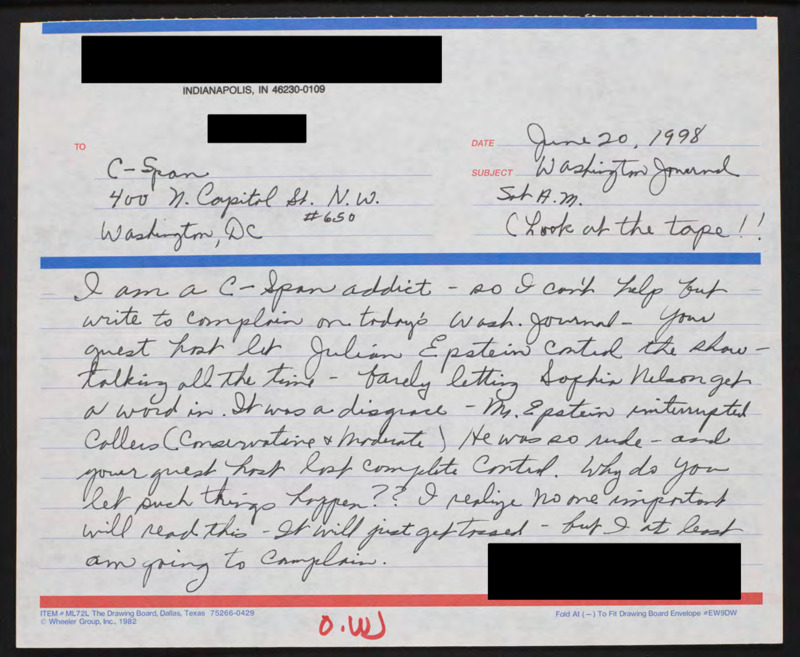 INDIANAPOLIS, IN 46230-0109
TO
C-Span
400 N. Capitol St. N.W.
#650
Washington, DC
DATE June 20, 1998
SUBJECT Washington Journal
Sat A.M.
(Look at the tape!!
I am a C-Span addict - so I can't help but
write to complain on today's Wash. Journal - Your
guest host let Julian Epstein control the show -
talking all the time - barely letting Sophia Nelson get
a word in. It was a disgrace - Mr. Epstein interrupted
Callers (Conservative & Moderate) He was so rude - and
your guest host lost complete control. Why do you
let such things happen?? I realize no one important
will read this - It will just get tossed - but I at least
am going to complain.
ITEM # ML72L The Drawing Board, Dallas, Texas 75266-0429
© Wheeler Group, Inc., 1982
Fold At (–) To Fit Drawing Board Envelope #EW9DW
O.W